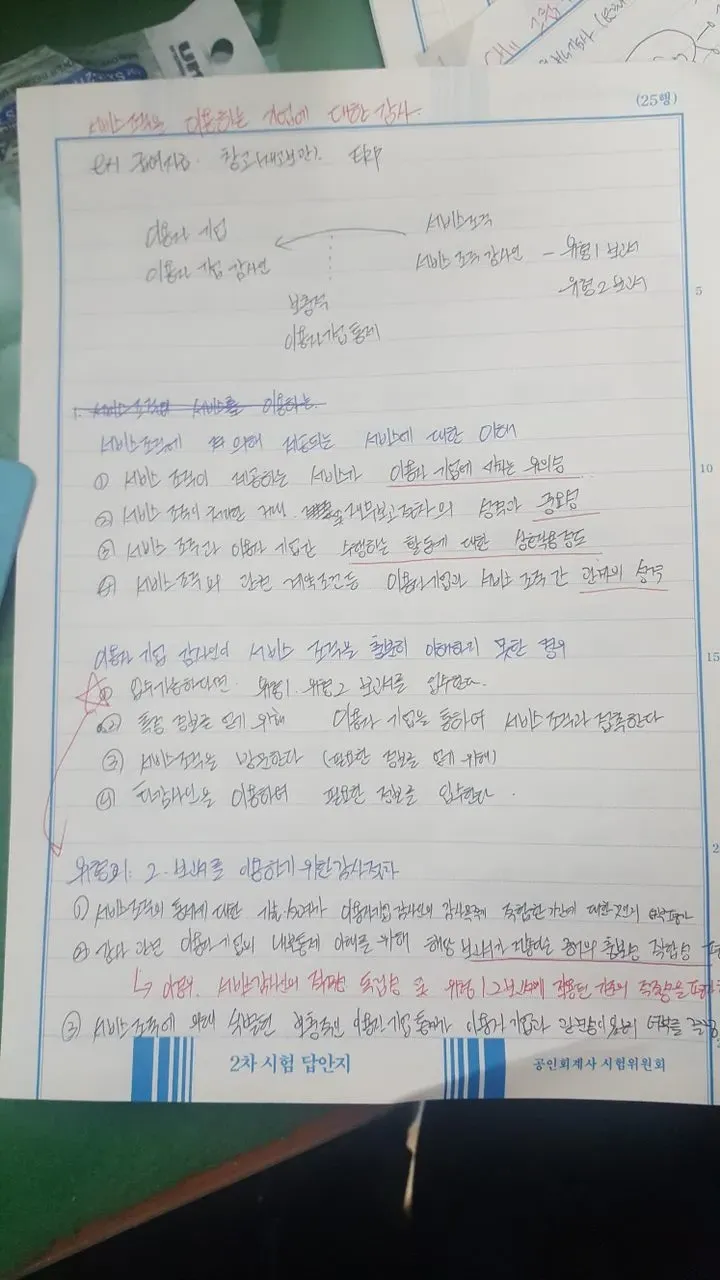 (25행)
서비스조직을 이용하는 기업에 대한 감사.
ex) 급여지급. 창고(재고보관). ERP
이용자 기업
서비스조직
이용자 기업 감사인
서비스 조직 감사인 - 유형1 보고서
- 유형2 보고서
보충적
이용자기업통제
5
1. 서비스조직의 서비스를 이용하는.
서비스조직에 의해 제공되는 서비스에 대한 이해
① 서비스 조직이 제공하는 서비스가 이용자 기업에 미치는 유의성
10
② 서비스 조직이 처리한 거래. 재무보고절차의 성격과 중요성
③ 서비스 조직과 이용자 기업간 수행하는 활동에 대한 상호작용정도
④ 서비스조직과 관련 계약조건등 이용자기업과 서비스 조직 간 관계의 성격
이용자 기업 감사인이 서비스 조직을 충분히 이해하지 못한 경우
15
① 입수가능하다면. 유형1. 유형2 보고서를 입수한다.
② 특정 정보를 얻기 위해 이용자 기업을 통하여 서비스 조직과 접촉한다
③ 서비스조직을 방문한다 (필요한 정보를 얻기 위해)
④ 타감사인을 이용하여 필요한 정보를 입수한다.
2
유형1. 2. 보고서를 이용하기 위한 감사절차
① 서비스조직의 통제에 대한 기술 이용자기업감사인의 감사목적에 적합한 기간에 대한 것인지 여부 평가
② 감사 관련 이용자 기업의 내부통제 이해를 위해 해당 보고서가 제공하는 증거의 충분성 적합성
↳ 이때. 서비스감사인의 적격성 독립성 및 유형1.2보고서에 적용된 기준의 적절성을 평가
③ 서비스 조직에 의해 식별된 보충적인 이용자기업통제가 이용자 기업과 관련성이 있는지 여부를
2차 시험 답안지
공인회계사 시험위원회